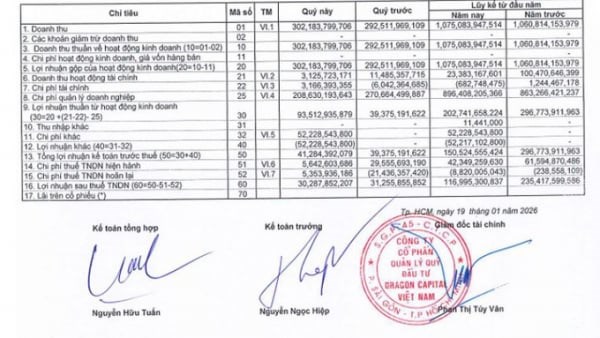 Chỉ tiêu Mã số TM Quý này Quý trước Lũy kế từ đầu năm
Năm nay Năm trước
1. Doanh thu 01 VI.1 302,183,799,706 292,511,969,109 1,075,083,947,514 1,060,814,153,979
2. Các khoản giảm trừ doanh thu 02 - - - -
3. Doanh thu thuần về hoạt động kinh doanh (10=01-02) 10 302,183,799,706 292,511,969,109 1,075,083,947,514 1,060,814,153,979
4. Chi phí hoạt động kinh doanh, giá vốn hàng bán 11 - - - -
5. Lợi nhuận gộp của hoạt động kinh doanh(20=10-11) 20 302,183,799,706 292,511,969,109 1,075,083,947,514 1,060,814,153,979
6. Doanh thu hoạt động tài chính 21 VI.2 3,125,723,171 11,485,357,715 23,383,167,601 100,470,646,399
7. Chi phí tài chính 22 VI.3 3,166,393,355 (6,042,364,685) (682,748,475) 1,244,467,178
8. Chi phí quản lý doanh nghiệp 25 VI.4 208,630,193,643 270,664,499,887 896,408,205,366 863,266,421,237
9. Lợi nhuận thuần từ hoạt động kinh doanh
(30=20 +(21-22)- 25) 30 93,512,935,879 39,375,191,622 202,741,658,224 296,773,911,963
10. Thu nhập khác 31 - - 11,441,000 -
11. Chi phí khác 32 VI.5 52,228,543,800 52,228,543,800
12. Lợi nhuận khác (40=31-32) 40 (52,228,543,800) - (52,217,102,800) -
13. Tổng lợi nhuận kế toán trước thuế (50=30+40) 50 41,284,392,079 39,375,191,622 150,524,555,424 296,773,911,963
14. Chi phí thuế TNDN hiện hành 51 VI.6 5,642,603,686 29,555,693,190 42,349,259,630 61,594,870,486
15. Chi phí thuế TNDN hoãn lại 52 VI.7 5,353,936,186 (21,436,357,420) (8,820,005,043) (238,558,109)
16. Lợi nhuận sau thuế TNDN (60=50-51-52) 60 30,287,852,207 31,255,855,852 116,995,300,837 235,417,599,586
17. Lãi trên cổ phiếu (*) 70
Tp. HCM, ngày 19 tháng 01 năm 2026
Kế toán tổng hợp Kế toán trưởng Giám đốc tài chính
CÔNG TY
CỔ PHẦN
QUẢN LÝ QUỸ
ĐẦU TƯ
DRAGON CAPITAL
VIỆT NAM
Nguyễn Hữu Tuấn Nguyễn Ngọc Hiệp Phan Thị Túy Vân